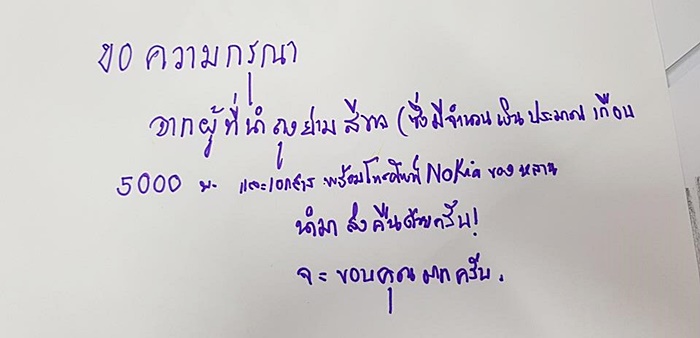 ขอ ความกรุณา
จากผู้ที่นำถุงย่าม สีขาว (ซึ่งมีจำนวนเงิน ประมาณ เกือบ
5000 บ. และเอกสาร พร้อมโทรศัพท์ Nokia ของ หลาน
นำมา ส่งคืนด้วยครับ!
จะ ขอบคุณ มากครับ.